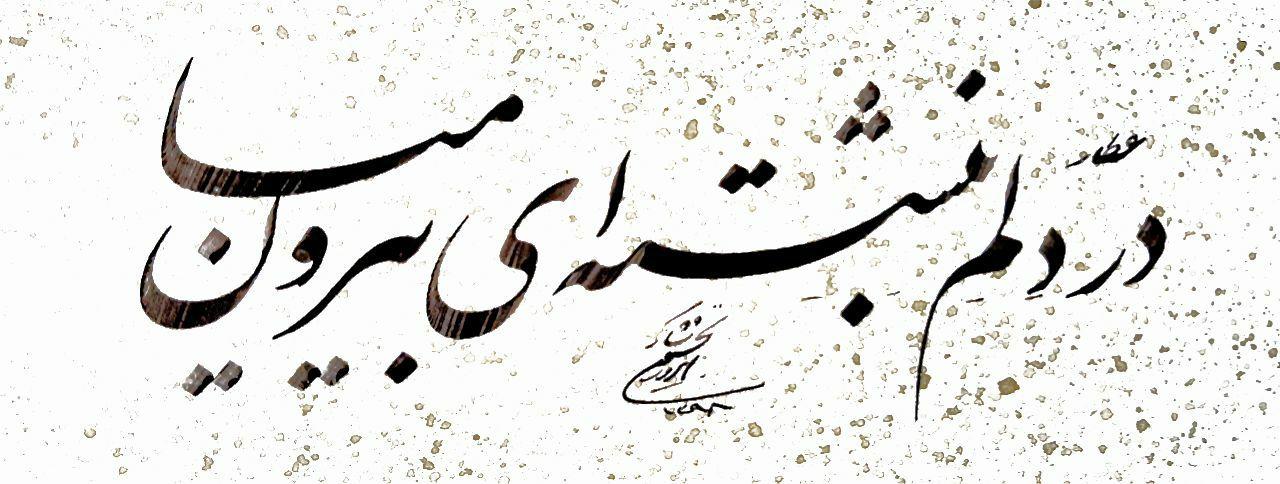 عطار
در دلم بنشسته‌ای بیرون میا